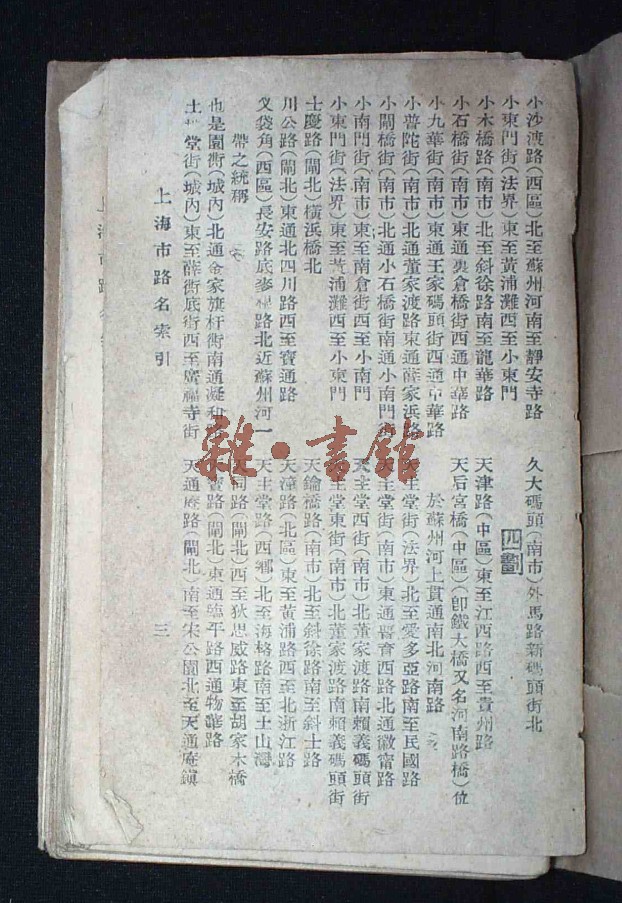 小沙渡路(西區)北至蘇州河南至靜安寺路
小東門街(法界)東至黃浦灘西至小東門
小木橋路(南市)北至斜徐路南至龍華路
小石橋街(南市)東通裏倉橋街西通中華路
小九華街(南市)東通王家碼頭街西通中華路
小普陀街(南市)北通董家渡路東通薛家浜路
小閘橋街(南市)北通小石橋街南通小南門
小南門街(南市)東至南倉街西至小南門
小東門街(法界)東至黃浦灘西至小東門
士慶路(閘北)橫浜橋北
川公路(閘北)東通北四川路西至寶通路
叉袋角(西區)長安路底麥根路北近蘇州河一
帶之統稱
也是園衖(城內)北通金家旗杆衖南通凝和路
土地堂街(城內)東至薛衖底街西至廣福寺街
久大碼頭(南市)外馬路新碼頭街北
四劃
天津路(中區)東至江西路西至貴州路
天后宮橋(中區)(卽鐵大橋又名河南路橋)位
於蘇州河上貫通南北河南路
天主堂街(法界)北至愛多亞路南至民國路
天主堂街(南市)東通西路北通徽甯路
天主堂西街(南市)北董家渡路南賴義碼頭街
天主堂東街(南市)北董家渡路南賴義碼頭街
天鑰橋路(南市)北至斜徐路南至斜士路
天潼路(北區)東至黃浦路西至北浙江路
天主堂路(西鄉)北至海格路南至土山灣
天同路(閘北)西至狄思威路東至胡家木橋
天寶路(閘北)東通臨平路西通物華路
天通庵路(閘北)南至宋公園北至天通庵鎮
上海市路名索引
三
雜·書館